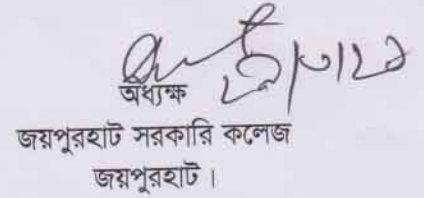 অধ্যক্ষ
জয়পুরহাট সরকারি কলেজ
জয়পুরহাট।